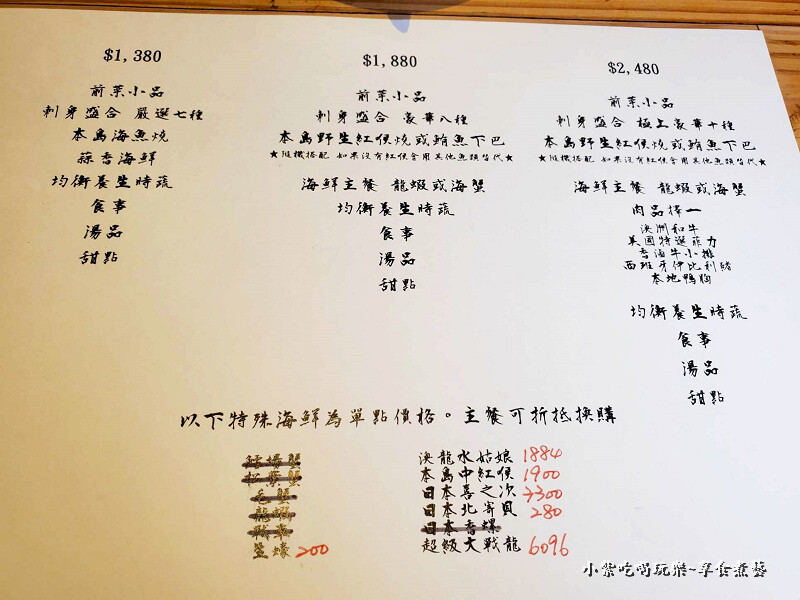 $1,380
前菜小品
刺身盛合 嚴選七種
本島海魚燒
蒜香海鮮
均衡養生時蔬
食事
湯品
甜點
$1,880
前菜小品
刺身盛合 豪華八種
本島野生紅條燒或鮪魚下巴
★隨機搭配 如果沒有紅條會用其他魚類替代★
海鮮主餐 龍蝦或海蟹
均衡養生時蔬
食事
湯品
甜點
$2,480
前菜小品
刺身盛合 極上豪華十種
本島野生紅條燒或鮪魚下巴
★隨機搭配 如果沒有紅條會用其他魚類替代★
海鮮主餐 龍蝦或海蟹
肉品擇一
澳洲和牛
美國特選菲力
香滷牛小排
西班牙伊比利豬
本地鴨胸
均衡養生時蔬
食事
湯品
甜點
以下特殊海鮮為單點價格。主餐可折抵換購
松葉蟹
毛蟹
龍蝦
生蠔 200
澳龍水姑娘 1884
本島中紅條 1900
日本喜之次
日本北寄貝 280
日本香螺
超級大戰龍 6096
小紫吃喝玩樂~享食煮藝